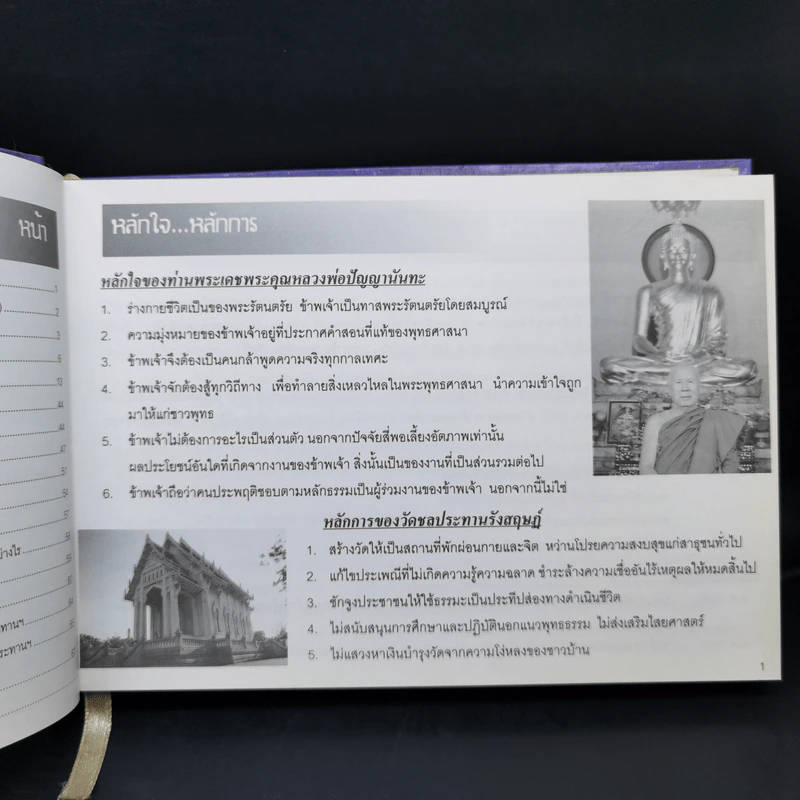 หน้า
1
2
3
6
13
44
44
47
51
54
57
59
ย่างไร
57
60
64
ทานฯ
65
ะทานฯ
หลักใจ...หลักการ
หลักใจของท่านพระเดชพระคุณหลวงพ่อปัญญานันทะ
1. ร่างกายชีวิตเป็นของพระรัตนตรัย ข้าพเจ้าเป็นทาสพระรัตนตรัยโดยสมบูรณ์
2. ความมุ่งหมายของข้าพเจ้าอยู่ที่ประกาศคำสอนที่แท้ของพุทธศาสนา
3. ข้าพเจ้าจึงต้องเป็นคนกล้าพูดความจริงทุกกาลเทศะ
4. ข้าพเจ้าจักต้องสู้ทุกวิถีทาง เพื่อทำลายสิ่งเหลวไหลในพระพุทธศาสนา นำความเข้าใจถูก
มาให้แก่ชาวพุทธ
5. ข้าพเจ้าไม่ต้องการอะไรเป็นส่วนตัว นอกจากปัจจัยสี่พอเลี้ยงอัตภาพเท่านั้น
ผลประโยชน์อันใดที่เกิดจากงานของข้าพเจ้า สิ่งนั้นเป็นของงานที่เป็นส่วนรวมต่อไป
6. ข้าพเจ้าถือว่าคนประพฤติชอบตามหลักธรรมเป็นผู้ร่วมงานของข้าพเจ้า นอกจากนี้ไม่ใช่
หลักการของวัดชลประทานรังสฤษฎ์
1. สร้างวัดให้เป็นสถานที่พักผ่อนกายและจิต หว่านโปรยความสงบสุขแก่สาธุชนทั่วไป
2. แก้ไขประเพณีที่ไม่เกิดความรู้ความฉลาด ชำระล้างความเชื่ออันไร้เหตุผลให้หมดสิ้นไป
3. ชักจูงประชาชนให้ใช้ธรรมะเป็นประทีปส่องทางดำเนินชีวิต
4. ไม่สนับสนุนการศึกษาและปฏิบัตินอกแนวพุทธธรรม ไม่ส่งเสริมไสยศาสตร์
5. ไม่แสวงหาเงินบำรุงวัดจากความโง่หลงของชาวบ้าน
1